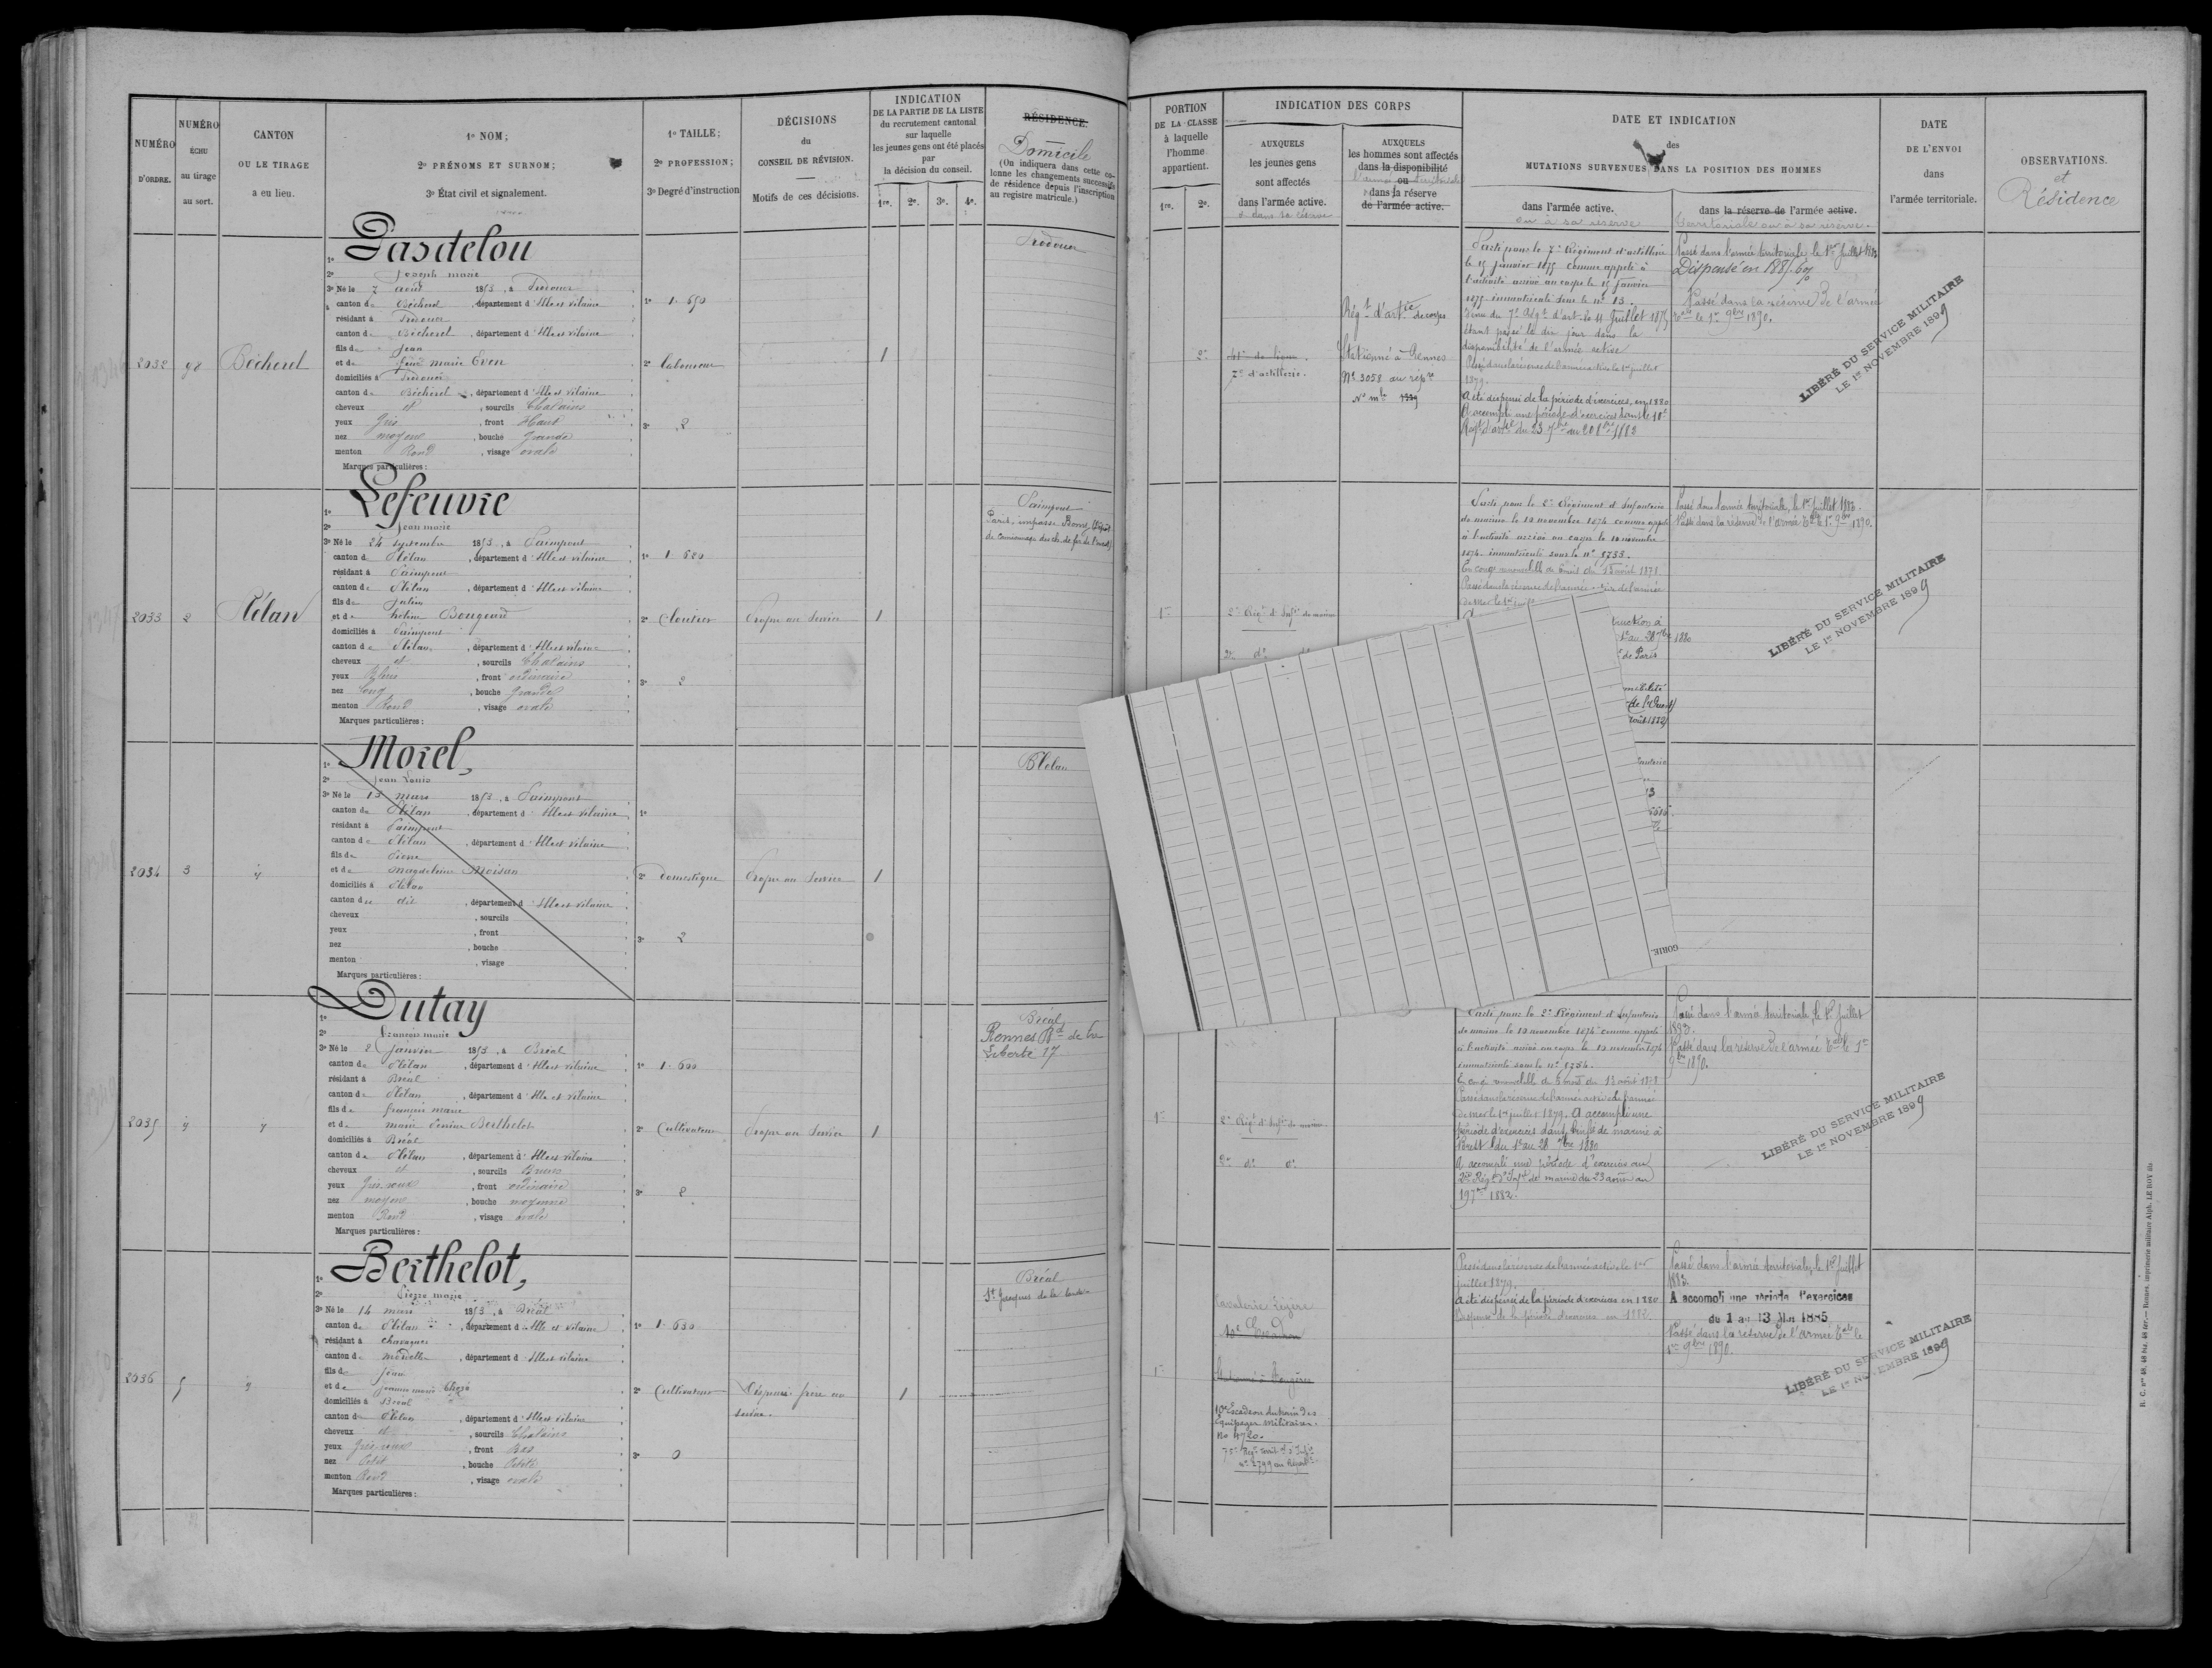 NUMÉRO
D'ORDRE.
NUMÉRO
ÉCHU
au tirage
au sort.
CANTON
OU LE TIRAGE
a eu lieu.
1º NOM;
2º PRÉNOMS ET SURNOM;
3º État civil et signalement.
1º TAILLE;
2º PROFESSION;
3º Degré d'instruction
DÉCISIONS
du
CONSEIL DE RÉVISION.
Motifs de ces décisions.
INDICATION
DE LA PARTIE DE LA LISTE
du recrutement cantonal
sur laquelle
les jeunes gens ont été placés
par
la décision du conseil.
1re. 2e. 3e. 4e.
RÉSIDENCE.
Domicile
(On indiquera dans cette co-
lonne les changements successifs
de résidence depuis l'inscription
au registre matricule.)
PORTION
DE LA CLASSE
à laquelle
l'homme
appartient.
1re. 2e.
INDICATION DES CORPS
AUXQUELS
les jeunes gens
sont affectés
dans l'armée active.
et dans sa réserve
AUXQUELS
les hommes sont affectés
dans la disponibilité
ou
dans la réserve
de l'armée active.
DATE ET INDICATION
des
MUTATIONS SURVENUES DANS LA POSITION DES HOMMES
dans l'armée active.
ou à sa réserve
dans la réserve de l'armée active.
territoriale ou à sa réserve.
DATE
DE L'ENVOI
dans
l'armée territoriale.
OBSERVATIONS.
et
Résidence
2032
98
Bécherel
1º Gasdelou
2º Joseph marie
3º Né le 7 août 1853, à
canton de Bécherel, département d'Ille et Vilaine
résidant à
canton de Bécherel, département d'Ille et Vilaine
fils de Jean
et de marie Even
domiciliés à
canton de Bécherel, département d'Ille et Vilaine
cheveux et, sourcils Chatains
yeux Gris, front Haut
nez moyen, bouche Grande
menton Rond, visage ovale
Marques particulières:
1º 1.650
2º Laboureur
3º 2
1
2e
7e d'artillerie.
Régt d'artie de corps
Stationné à Rennes
Nº 3058 au répre
Parti pour le 7e Régiment d'artillerie
le 15 Janvier 1875 comme appelé à
l'activité arrivé au corps le 15 Janvier
1875 immatriculé sous le nº 13.
Venu du 7e Régt d'art. le 11 Juillet 1875
étant passé le dix jour dans la
disponibilité de l'armée active
Passé dans la réserve de l'armée active le 1er juillet
1879.
A été dispensé de la période d'exercices, en 1880
A accompli une période d'exercices dans le 10e
Passé dans l'armée territoriale le 1er Juillet 1883
Dispensé en 1885.
Passé dans la réserve de l'armée
le 1er 9bre 1890.
LIBÉRÉ DU SERVICE MILITAIRE
LE 1er NOVEMBRE 1899
2033
2
Plélan
1º Lefeuvre
2º Jean marie
3º Né le 24 septembre 1853, à Paimpont
canton de Plélan, département d'Ille et Vilaine
résidant à Paimpont
canton de Plélan, département d'Ille et Vilaine
fils de Julien
et de Bougeard
domiciliés à Paimpont
canton de Plélan, département d'Ille et Vilaine
cheveux et, sourcils Chatains
yeux Bleus, front ordinaire
nez Long, bouche Grande
menton Rond, visage ovale
Marques particulières:
1º 1.680
2º Cloutier
3º 2
Propre au Service
1
Paimpont
Paris, impasse
de camionnage du ch. de fer de l'ouest)
1re
2e Régt d'Infie de marine
do
Parti pour le 2e Régiment d'Infanterie
de marine le 10 novembre 1874 comme appelé
à l'activité arrivé au corps le 10 novembre
1874 immatriculé sous le nº 5733.
En congé renouvelable de 6 mois du 15 avril 1878
de mer le 1er
ruction à
1er au 28 7bre 1880
de Paris
de l'Ouest)
Août 1882)
Passé dans l'armée territoriale, le 1er Juillet 1883.
Passé dans la réserve de l'armée Tale le 1er 9bre 1890.
LIBÉRÉ DU SERVICE MILITAIRE
LE 1er NOVEMBRE 1899
2034
3
1º Morel,
2º Jean Louis
3º Né le 13 mars 1853, à Paimpont
canton de Plélan, département d'Ille et Vilaine
résidant à Paimpont
canton de Plélan, département d'Ille et Vilaine
fils de Pierre
et de Magdeleine Moisan
domiciliés à Plélan
canton du dit, département d'Ille et Vilaine
cheveux, sourcils
yeux, front
nez, bouche
menton, visage
Marques particulières:
1º
2º Domestique
3º 2
Propre au Service
1
Plélan
GORIE
2035
4
1º Dutay
2º François marie
3º Né le 2 Janvier 1853, à Bréal
canton de Plélan, département d'Ille et Vilaine
résidant à Bréal
canton de Plélan, département d'Ille et Vilaine
fils de françois marie
et de marie Perrine Berthelot
domiciliés à Bréal
canton de Plélan, département d'Ille et Vilaine
cheveux et, sourcils Bruns
yeux Gris roux, front ordinaire
nez moyen, bouche moyenne
menton Rond, visage ovale
Marques particulières:
1º 1.600
2º Cultivateur
3º 2
Propre au Service
1
Bréal
Rennes Bd de la
Liberté 17
1re
2e Régt d'Infie de marine
2e do do
Parti pour le 2e Régiment d'Infanterie
de marine le 10 novembre 1874 comme appelé
à l'activité arrivé au corps le 10 novembre 1874
immatriculé sous le nº 5754.
En congé renouvelable de 6 mois du 13 août 1878
Passé dans la réserve de l'armée active de l'armée
de mer le 1er juillet 1879. A accompli une
période d'exercices dans l'infie de marine à
Brest du 1er au 28 7bre 1880
A accompli une période d'exercices au
2e Régt d'Infie de marine du 23 août au
19 7bre 1882.
Passé dans l'armée territoriale, le 1er Juillet
1883.
Passé dans la réserve de l'armée Tale le 1er
9bre 1890.
LIBÉRÉ DU SERVICE MILITAIRE
LE 1er NOVEMBRE 1899
2036
5
1º Berthelot,
2º Pierre marie
3º Né le 14 mars 1853, à Bréal
canton de Plélan, département d'Ille et Vilaine
résidant à Chavagnes
canton de Mordelles, département d'Ille et Vilaine
fils de Jean
et de Jeanne marie
domiciliés à Bréal
canton de Plélan, département d'Ille et Vilaine
cheveux et, sourcils Chatains
yeux Gris roux, front Bas
nez Petit, bouche Petite
menton Rond, visage ovale
Marques particulières:
1º 1.630
2º Cultivateur
3º 0
Dispensé frère au
service.
1
Bréal
St Jacques de la Lande
1re
Cavalerie Légère
10e Escadron
10e Escadron du train des
Équipages Militaires.
No 4720.
75e Régt territ. al d'Infie
nº 2799 au Répert.
Passé dans la réserve de l'armée active le 1er
juillet 1879.
A été dispensé de la période d'exercices en 1880
Dispensé de la période d'exercices en 1882
Passé dans l'armée territoriale, le 1er Juillet
1883.
A accompli une période d'exercices
du 1 au 13 Mai 1885
Passé dans la réserve de l'armée Tale le
1er 9bre 1890.
LIBÉRÉ DU SERVICE MILITAIRE
LE 1er NOVEMBRE 1899